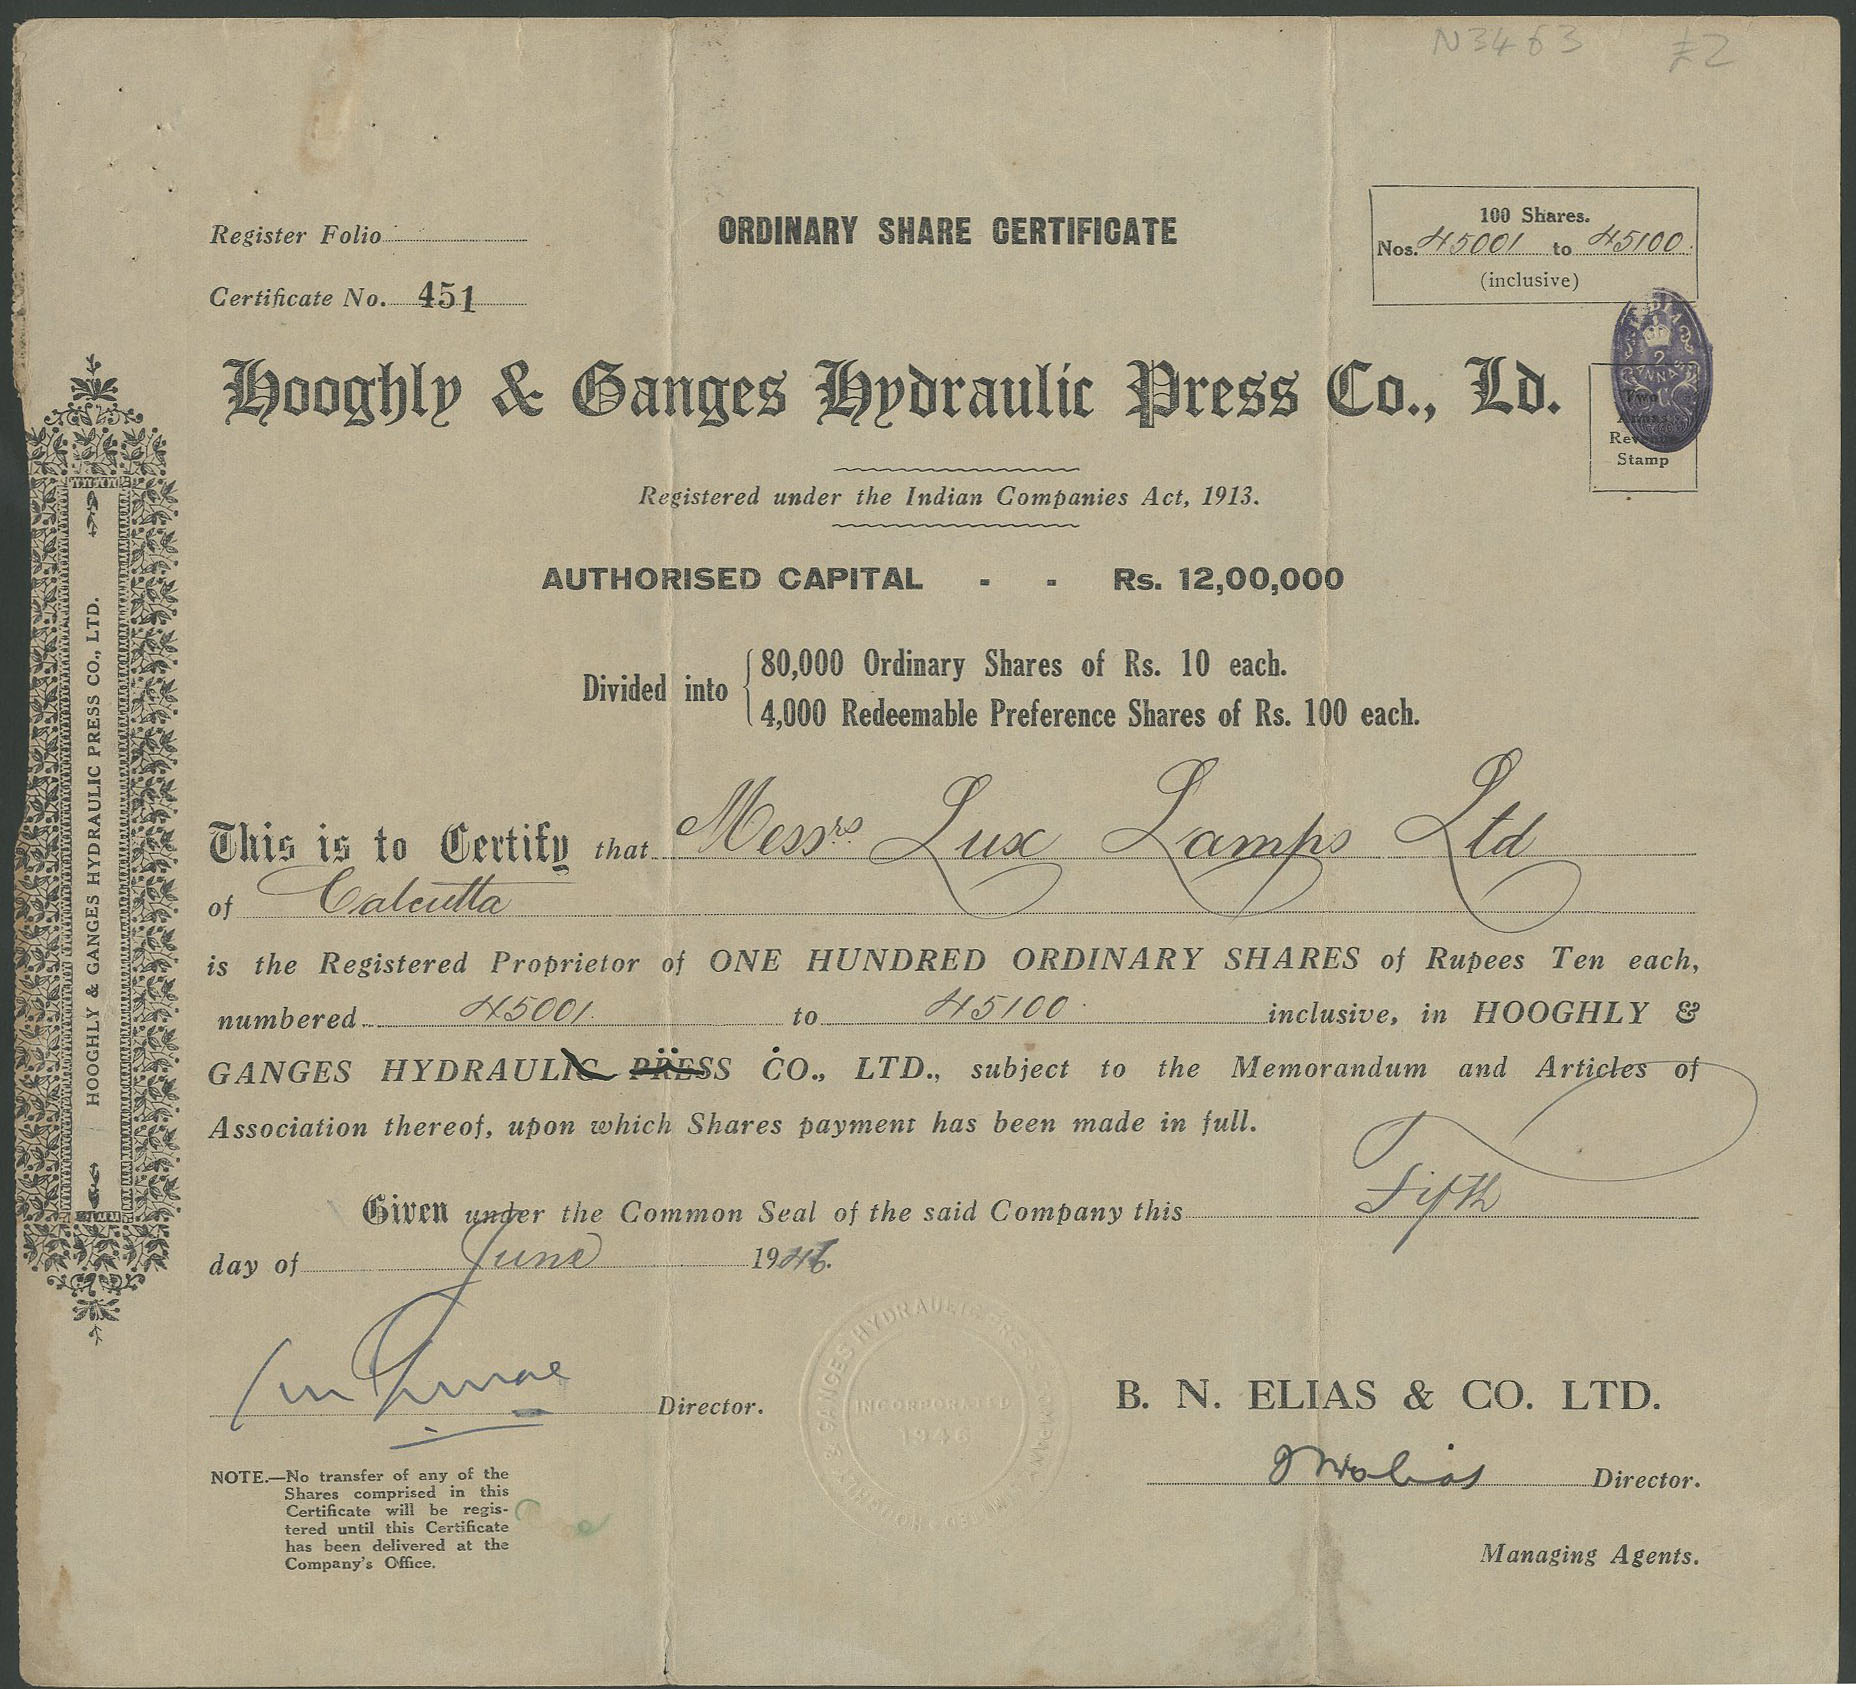 N3463 £2
Register Folio
ORDINARY SHARE CERTIFICATE
100 Shares.
Nos. 45001 to 45100
(inclusive)
Certificate No. 451
INDIA
2
ANNAS
Hooghly & Ganges Hydraulic Press Co., Ld.
Two
Annas
Revenue
Stamp
Registered under the Indian Companies Act, 1913.
AUTHORISED CAPITAL - - Rs. 12,00,000
Divided into
80,000 Ordinary Shares of Rs. 10 each.
4,000 Redeemable Preference Shares of Rs. 100 each.
This is to Certify that Messrs. Lux Lamps Ltd
of Calcutta
is the Registered Proprietor of ONE HUNDRED ORDINARY SHARES of Rupees Ten each,
numbered 45001 to 45100 inclusive, in HOOGHLY &
GANGES HYDRAULIC PRESS CO., LTD., subject to the Memorandum and Articles of
Association thereof, upon which Shares payment has been made in full.
Given under the Common Seal of the said Company this Fifth
day of June 1946.
Director.
HOOGHLY & GANGES HYDRAULIC PRESS COMPANY LIMITED
INCORPORATED
1946
B. N. ELIAS & CO. LTD.
Director.
Managing Agents.
NOTE.—No transfer of any of the
Shares comprised in this
Certificate will be regis-
tered until this Certificate
has been delivered at the
Company's Office.
HOOGHLY & GANGES HYDRAULIC PRESS CO., LTD.